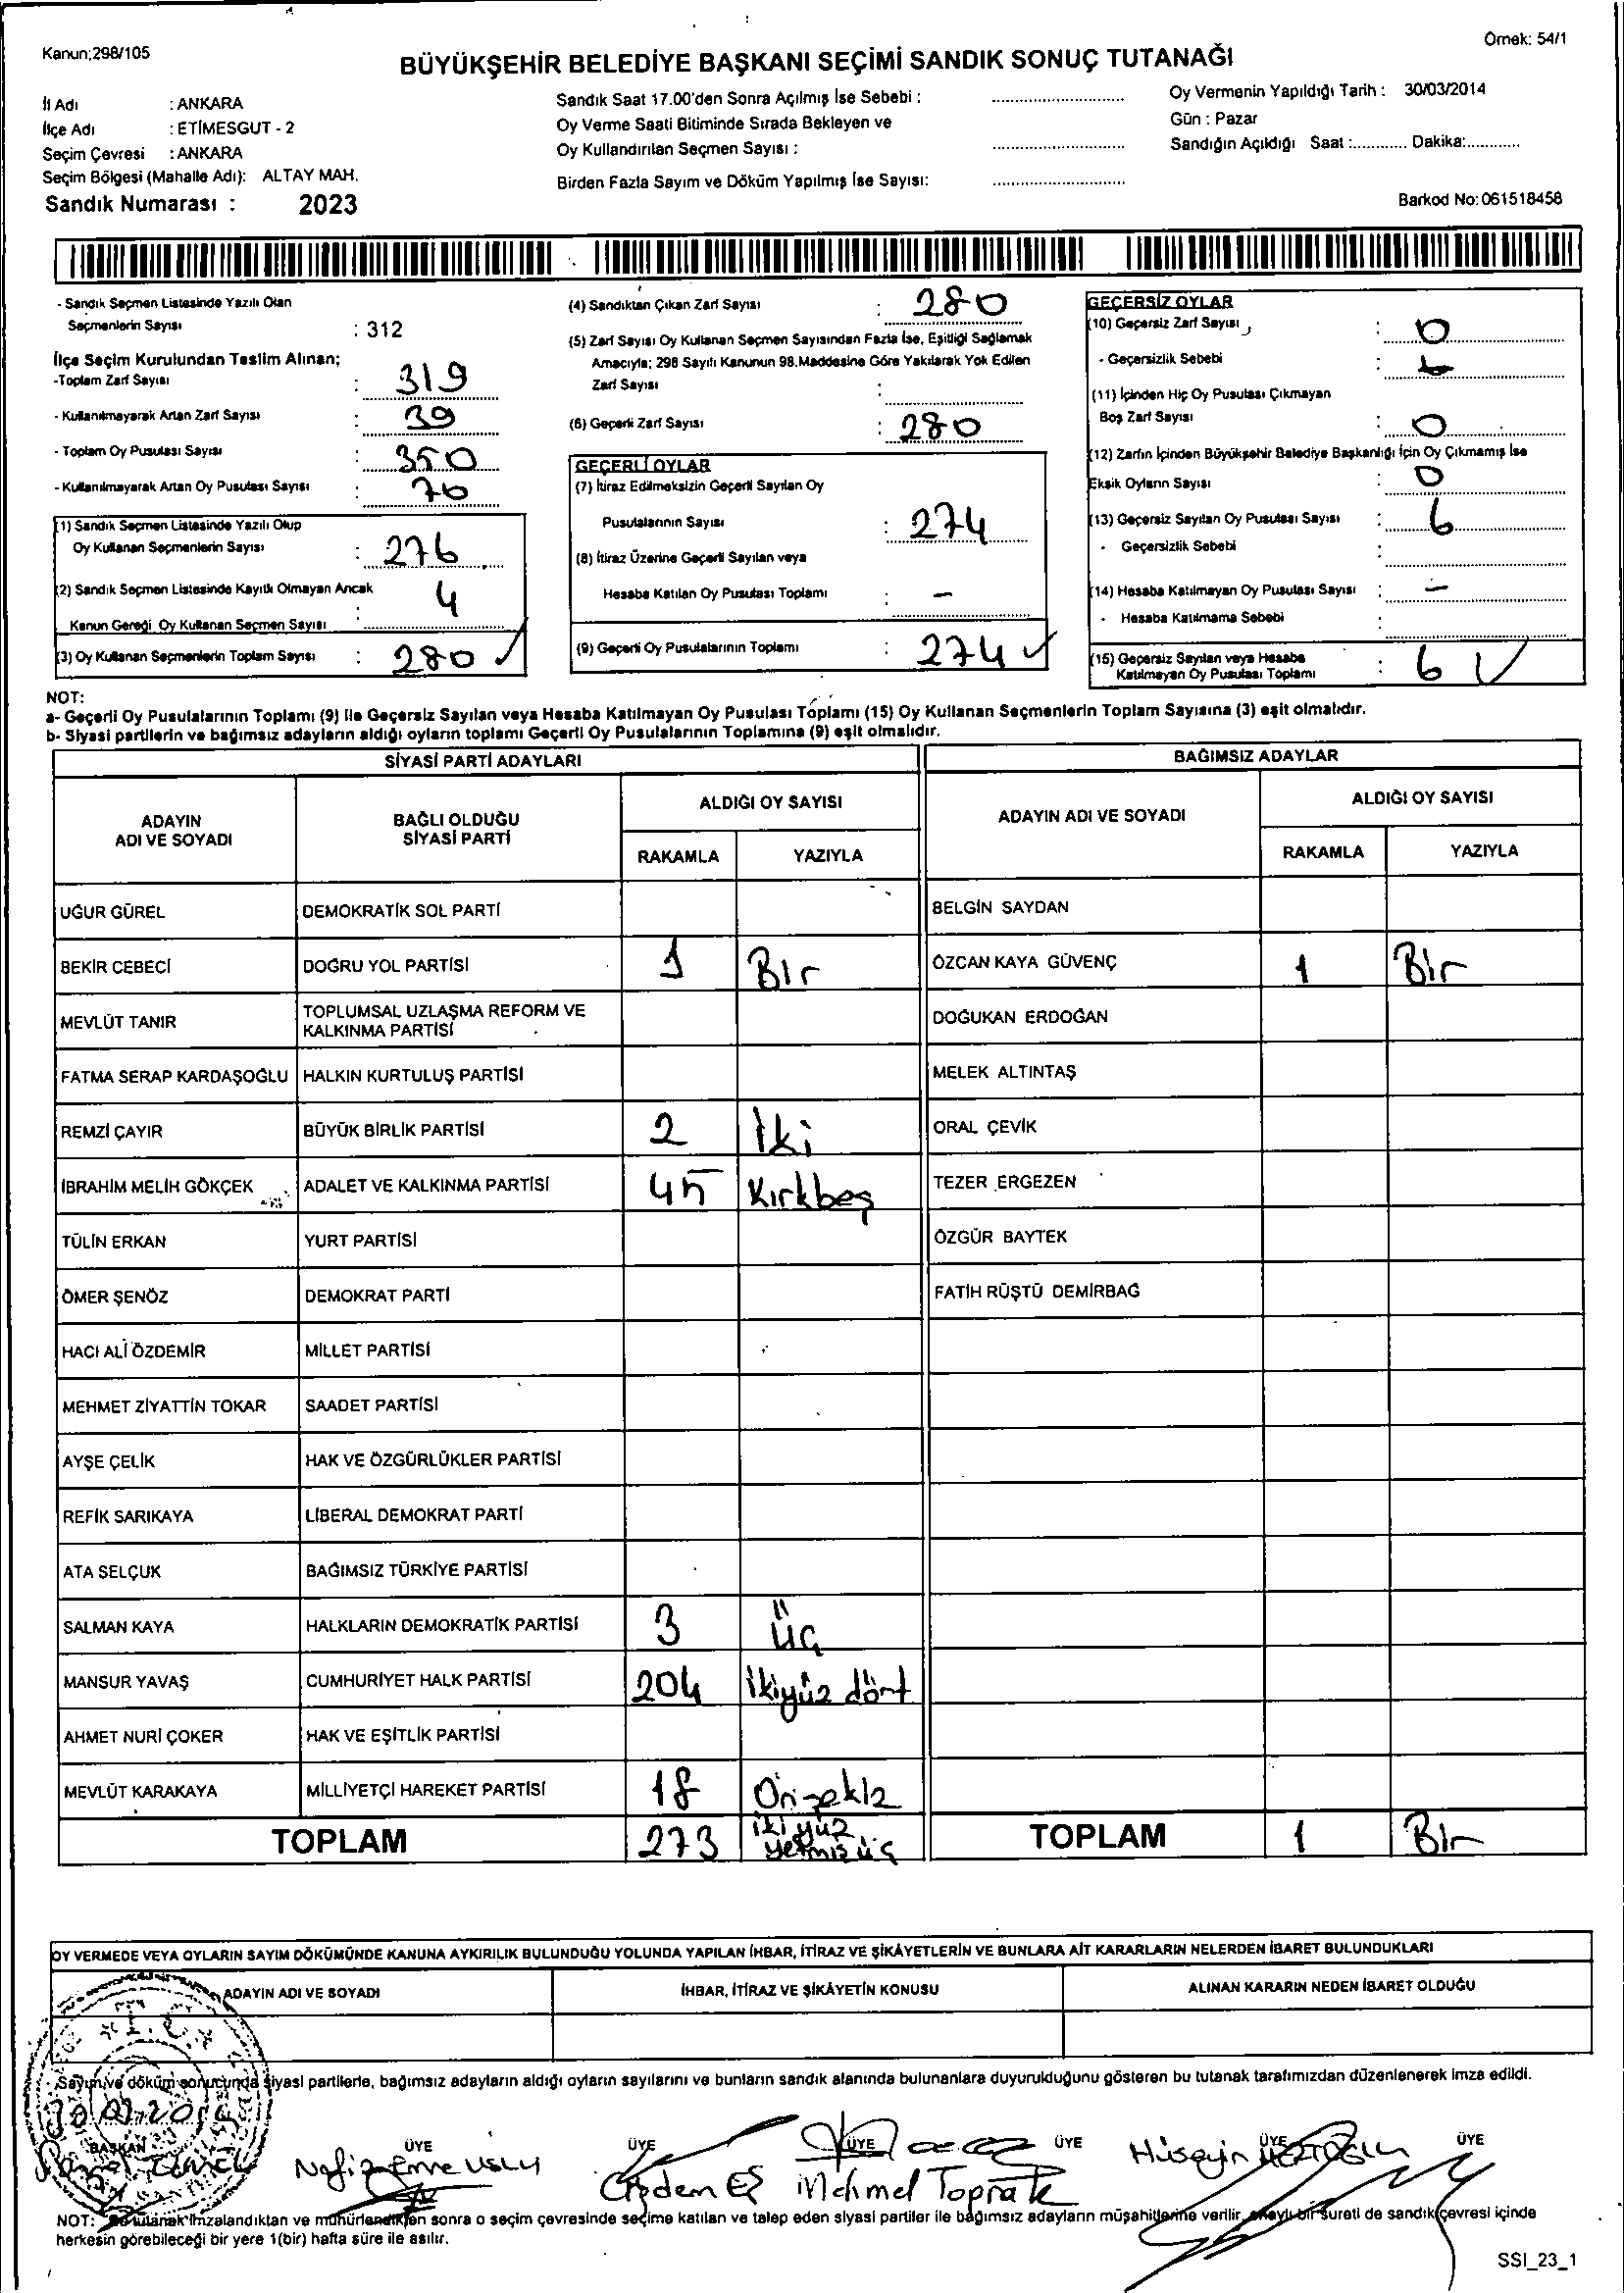 Kanun;298/105
Örnek: 54/1
BÜYÜKŞEHİR BELEDİYE BAŞKANI SEÇİMİ SANDIK SONUÇ TUTANAĞI
İl Adı : ANKARA
İlçe Adı : ETİMESGUT - 2
Seçim Çevresi : ANKARA
Seçim Bölgesi (Mahalle Adı): ALTAY MAH.
Sandık Numarası : 2023
Sandık Saat 17.00'den Sonra Açılmış İse Sebebi : ............................
Oy Verme Saati Bitiminde Sırada Bekleyen ve
Oy Kullandırılan Seçmen Sayısı : ............................
Birden Fazla Sayım ve Döküm Yapılmış İse Sayısı: ............................
Oy Vermenin Yapıldığı Tarih : 30/03/2014
Gün : Pazar
Sandığın Açıldığı Saat :............ Dakika:............
Barkod No: 061518458
- Sandık Seçmen Listesinde Yazılı Olan
Seçmenlerin Sayısı : 312
İlçe Seçim Kurulundan Teslim Alınan;
-Toplam Zarf Sayısı : 319
- Kullanılmayarak Artan Zarf Sayısı : 39
- Toplam Oy Pusulası Sayısı : 350
- Kullanılmayarak Artan Oy Pusulası Sayısı : 70
(1) Sandık Seçmen Listesinde Yazılı Olup
Oy Kullanan Seçmenlerin Sayısı : 276
(2) Sandık Seçmen Listesinde Kayıtlı Olmayan Ancak
Kanun Gereği Oy Kullanan Seçmen Sayısı : 4
(3) Oy Kullanan Seçmenlerin Toplam Sayısı : 280 ✓
(4) Sandıktan Çıkan Zarf Sayısı : 280
(5) Zarf Sayısı Oy Kullanan Seçmen Sayısından Fazla İse, Eşitliği Sağlamak
Amacıyla; 298 Sayılı Kanunun 98.Maddesine Göre Yakılarak Yok Edilen
Zarf Sayısı :
(6) Geçerli Zarf Sayısı : 280
GEÇERLİ OYLAR
(7) İtiraz Edilmeksizin Geçerli Sayılan Oy
Pusulalarının Sayısı : 274
(8) İtiraz Üzerine Geçerli Sayılan veya
Hesaba Katılan Oy Pusulası Toplamı : -
(9) Geçerli Oy Pusulalarının Toplamı : 274 ✓
GEÇERSİZ OYLAR
(10) Geçersiz Zarf Sayısı : 0
- Geçersizlik Sebebi :
(11) İçinden Hiç Oy Pusulası Çıkmayan
Boş Zarf Sayısı : 0
(12) Zarfın İçinden Büyükşehir Belediye Başkanlığı İçin Oy Çıkmamış İse
Eksik Oyların Sayısı : 0
(13) Geçersiz Sayılan Oy Pusulası Sayısı : 6
- Geçersizlik Sebebi :
(14) Hesaba Katılmayan Oy Pusulası Sayısı : -
- Hesaba Katılmama Sebebi :
(15) Geçersiz Sayılan veya Hesaba
Katılmayan Oy Pusulası Toplamı : 6 ✓
NOT:
a- Geçerli Oy Pusulalarının Toplamı (9) ile Geçersiz Sayılan veya Hesaba Katılmayan Oy Pusulası Toplamı (15) Oy Kullanan Seçmenlerin Toplam Sayısına (3) eşit olmalıdır.
b- Siyasi partilerin ve bağımsız adayların aldığı oyların toplamı Geçerli Oy Pusulalarının Toplamına (9) eşit olmalıdır.
SİYASİ PARTİ ADAYLARI
ADAYIN ADI VE SOYADI
BAĞLI OLDUĞU SİYASİ PARTİ
ALDIĞI OY SAYISI
RAKAMLA YAZIYLA
UĞUR GÜREL DEMOKRATİK SOL PARTİ
BEKİR CEBECİ DOĞRU YOL PARTİSİ 1 Bir
MEVLÜT TANIR TOPLUMSAL UZLAŞMA REFORM VE
KALKINMA PARTİSİ
FATMA SERAP KARDAŞOĞLU HALKIN KURTULUŞ PARTİSİ
REMZİ ÇAYIR BÜYÜK BİRLİK PARTİSİ 2 İki
İBRAHİM MELİH GÖKÇEK ADALET VE KALKINMA PARTİSİ 45 Kırkbeş
TÜLİN ERKAN YURT PARTİSİ
ÖMER ŞENÖZ DEMOKRAT PARTİ
HACI ALİ ÖZDEMİR MİLLET PARTİSİ
MEHMET ZİYATTİN TOKAR SAADET PARTİSİ
AYŞE ÇELİK HAK VE ÖZGÜRLÜKLER PARTİSİ
REFİK SARIKAYA LİBERAL DEMOKRAT PARTİ
ATA SELÇUK BAĞIMSIZ TÜRKİYE PARTİSİ
SALMAN KAYA HALKLARIN DEMOKRATİK PARTİSİ 3 Üç
MANSUR YAVAŞ CUMHURİYET HALK PARTİSİ 204 İkiyüz dört
AHMET NURİ ÇOKER HAK VE EŞİTLİK PARTİSİ
MEVLÜT KARAKAYA MİLLİYETÇİ HAREKET PARTİSİ 18 Onsekiz
TOPLAM 273 iki yüz
yetmiş üç
BAĞIMSIZ ADAYLAR
ADAYIN ADI VE SOYADI
ALDIĞI OY SAYISI
RAKAMLA YAZIYLA
BELGİN SAYDAN
ÖZCAN KAYA GÜVENÇ 1 Bir
DOĞUKAN ERDOĞAN
MELEK ALTINTAŞ
ORAL ÇEVİK
TEZER ERGEZEN
ÖZGÜR BAYTEK
FATİH RÜŞTÜ DEMİRBAĞ
TOPLAM 1 Bir
OY VERMEDE VEYA OYLARIN SAYIM DÖKÜMÜNDE KANUNA AYKIRILIK BULUNDUĞU YOLUNDA YAPILAN İHBAR, İTİRAZ VE ŞİKÂYETLERİN VE BUNLARA AİT KARARLARIN NELERDEN İBARET BULUNDUKLARI
ADAYIN ADI VE SOYADI İHBAR, İTİRAZ VE ŞİKÂYETİN KONUSU ALINAN KARARIN NEDEN İBARET OLDUĞU
T.C.
Sayım ve döküm sonucunda siyasi partilerle, bağımsız adayların aldığı oyların sayılarını ve bunların sandık alanında bulunanlara duyurulduğunu gösteren bu tutanak tarafımızdan düzenlenerek imza edildi.
BAŞKAN ÜYE ÜYE ÜYE ÜYE ÜYE ÜYE
Nafiz Emre USLU Çiğdem EŞ Mehmet Toprak Hüseyin
NOT: Bu tutanak imzalandıktan ve mühürlendikten sonra o seçim çevresinde seçime katılan ve talep eden siyasi partiler ile bağımsız adayların müşahitlerine verilir, onaylı bir sureti de sandık çevresi içinde
herkesin görebileceği bir yere 1(bir) hafta süre ile asılır.
SSI_23_1